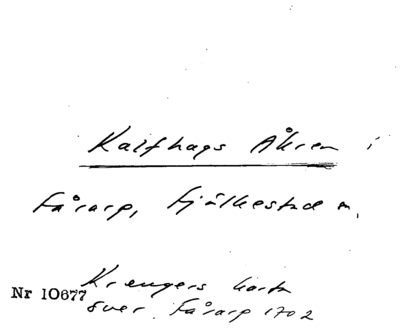 Kalfhags Åkren i
Fårarp, Fjälkestad n,
Krœngers karta
Nr 10677
över Fårarp 1702